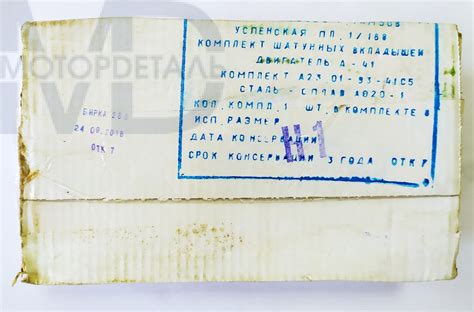 УСПЕНСКАЯ ПЛ. 1/168
КОМПЛЕКТ ШАТУННЫХ ВКЛАДЫШЕЙ
ДВИГАТЕЛЬ Д-41
КОМПЛЕКТ А23 01-93-41С5
СТАЛЬ - СПЛАВ АО20-1
КОЛ. КОМПЛ. 1 ШТ. В КОМПЛЕКТЕ 8
ИСП. РАЗМЕР
Н1
ДАТА КОНСЕРВАЦИИ
СРОК КОНСЕРВАЦИИ 3 ГОДА ОТК 7
БИРКА
24 09. 2018
ОТК 7
МОТОРДЕТАЛЬ